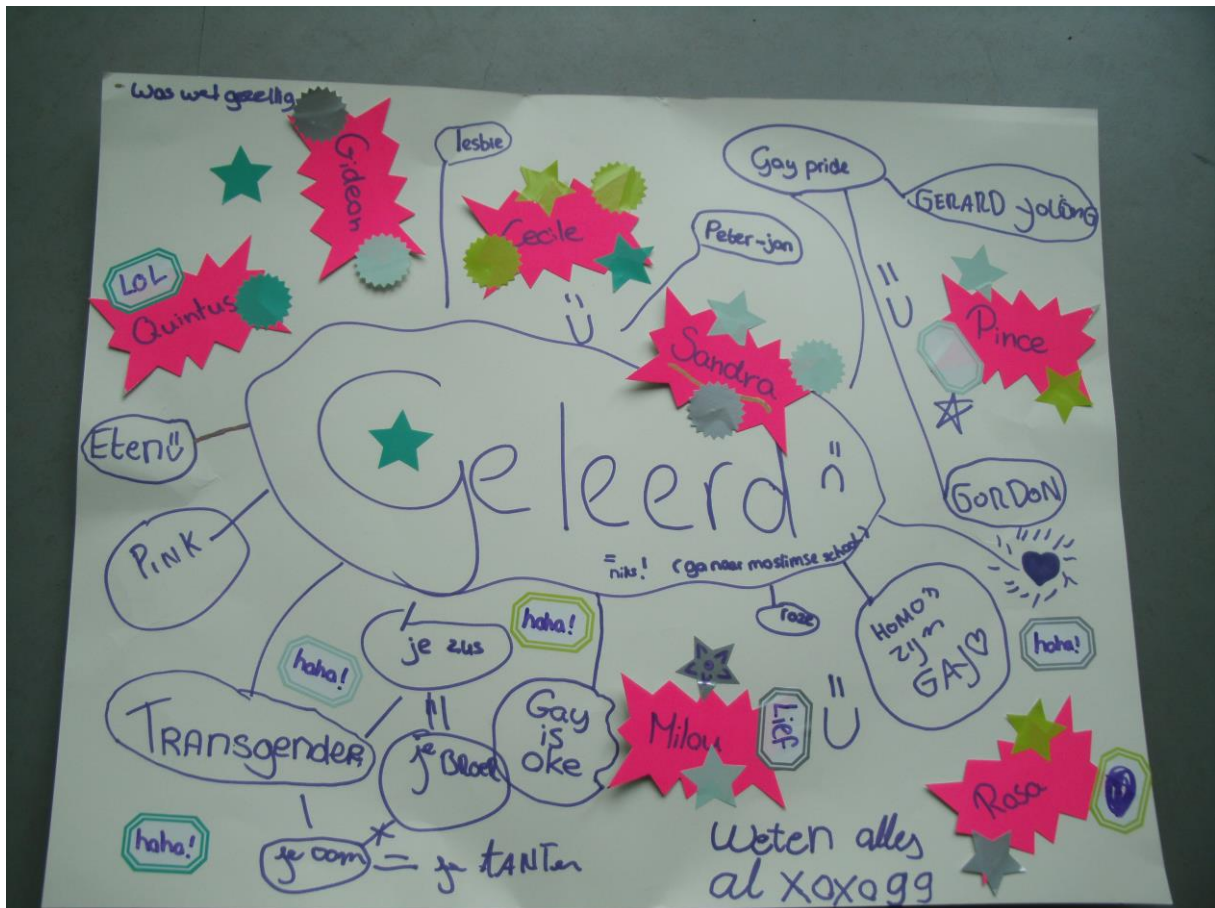 - Was wel gezellig
Gideon
lesbie
Cecile
Gay pride
GERARD joLING
Peter-jan
LOL
Quintus
Sandra
Pince
Eten
Geleerd
GORDON
PINK
= niks! (ga naar moslimse school)
roze
HOMO's
zijn
GAJ
haha!
je zus
haha!
haha!
TRANSgENDER
je BROER
Gay
is
oke
Milou
Lief
Rosa
haha!
je oom = je tANTe
weten alles
al xoxogg